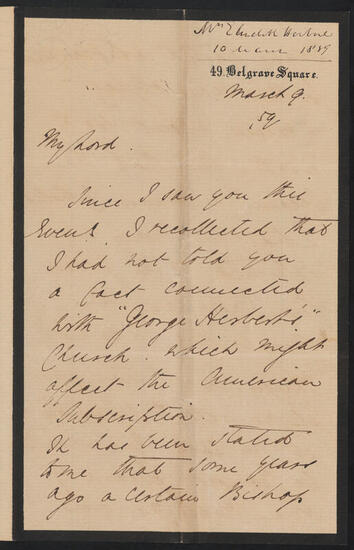 Mrs Elizabeth Herbert
10 March 1859
49. Belgrave Square.
March 9.
/59
My Lord.
Since I saw you this
Eveng. I recollected that
I had not told you
a fact connected
with "George Herbert's"
Church. which might
affect the American
Subscription.
It has been stated
to me that some years
ago a certain Bishop